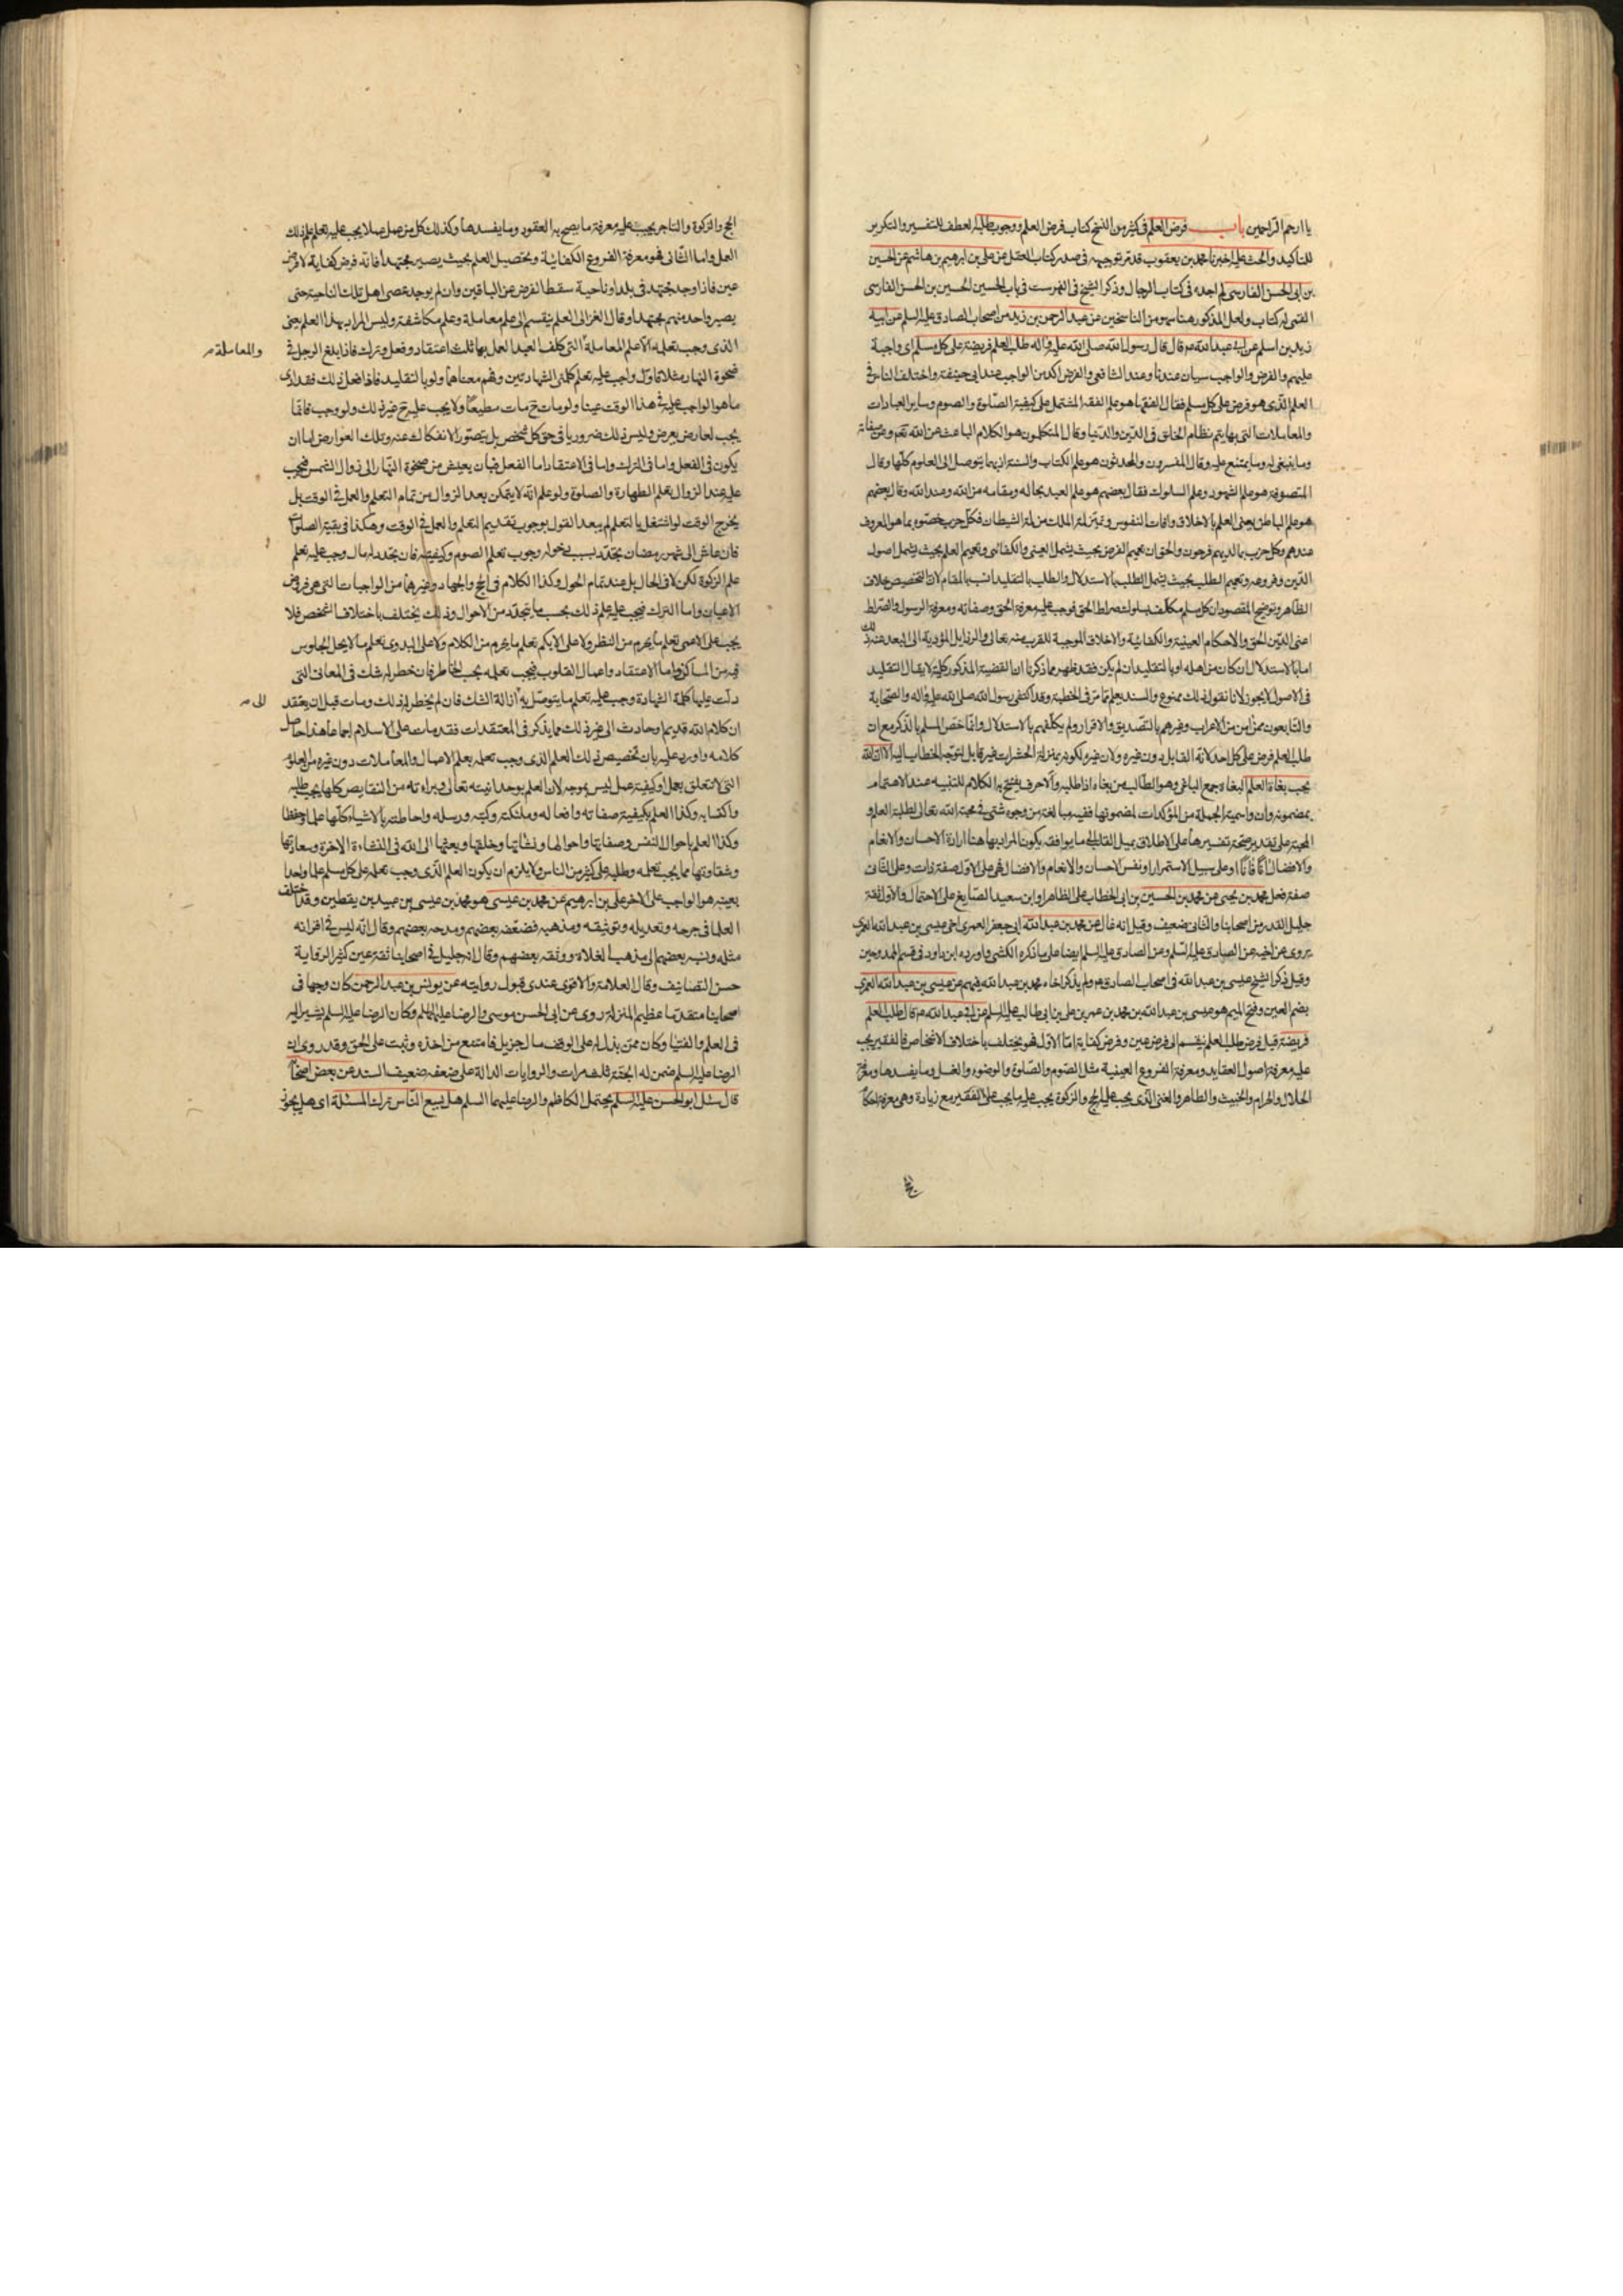 يا ارحم الراحمين باب فرض العلم فى كثير من النسخ كتاب فرض العلم ووجوب طلبه العطف للتفسير والتكرير
للتاكيد والحث عليه اخبرنا محمد بن يعقوب قد مر توجيهه فى صدر كتاب العقل عن على بن ابرهيم بن هاشم عن الحسين
بن ابى الحسن الفارسى لم اجده فى كتاب الرجال وذكر الشيخ فى الفهرست فى باب الحسين الحسين بن الحسن الفارسى
القمى له كتاب ولعل المذكور هنا سهو من الناسخين عن عبد الرحمن بن زيد من اصحاب الصادق عليه السلم عن ابيه
زيد بن اسلم عن ابى عبد الله عم قال قال رسول الله صلى الله عليه واله طلب العلم فريضة على كل مسلم اى واجبة
عليهم والفرض والواجب سيان عندنا وعند الشافعى والفرض اكد من الواجب عند ابى حنيفة واختلف الناس فى
العلم الذى هو فرض على كل مسلم فقال الفقهاء هو علم الفقه المشتمل على كيفية الصلوة والصوم وساير العبادات
والمعاملات التى بها يتم نظام الخلق فى الدين والدنيا وقال المتكلمون هو الكلام الباعث عن الله تعم وعن صفاته
وما ينبغى له وما يمتنع عليه وقال المفسرون والمحدثون هو علم الكتاب والسنة اذ بهما يتوصل الى العلوم كلها وقال
المتصوفة هو علم الشهود وعلم السلوك فقال بعضهم هو علم العبد بحاله ومقامه من الله وعند الله وقال بعضهم
هو علم الباطن يعنى العلم بالاخلاق وافات النفوس وتميز لمة الملك من لمة الشيطان فكل حزب خصوه بما هو المعروف
عندهم وكل حزب بما لديهم فرحون والحق ان تعميم الفرض بحيث يشمل العينى والكفائى وتعميم العلم بحيث يشمل اصول
الدين وفروعه وتعميم الطلب بحيث يشمل الطلب بالاستدلال والطلب بالتقليد انسب بالمقام لان التخصيص خلاف
الظاهر وتوضيح المقصود ان كل مسلم مكلف بسلوك صراط الحق فوجب عليه معرفة الحق وصفاته ومعرفة الرسول والصراط
اعنى الدين الحق والاحكام العينية والكفائية والاخلاق الموجبة للقرب منه تعالى والرذايل المؤدية الى البعد عنه كل ذلك
اما بالاستدلال ان كان من اهله او بالتقليد ان لم يكن فقد ظهر مما ذكرنا ان القضية المذكور كلية لا يقال التقليد
فى الاصول لا يجوز لانا نقول ذلك ممنوع والسند يعلم مما مر فى الخطبة وقد اكتفى رسول الله صلى الله عليه واله والصحابة
والتابعون ممن امن من الاعراب وغيرهم بالتصديق والاقرار ولم يكلفهم بالاستدلال وانما خص المسلم بالذكر مع ان
طلب العلم فرض على كل احد لانه القابل دون غيره ولان غيره لكونه بمنزلة الحشرات غير قابل لتوجه الخطاب اليه الا ان الله
يحب بغاة العلم البغاة جمع الباغى وهو الطالب من بغاه اذا طلبه والا حرف يفتح به الكلام للتنبيه عند الاهتمام
بمضمونه وان واسمية الجملة من المؤكدات لمضمونها ففيه مبالغة من وجوه شتى فى محبة الله تعالى لطلبة العلم و
المحبة على تقدير صحة تفسيرها على الاطلاق بميل القلب الى ما يوافقه يكون المراد بها هنا ارادة الاحسان والانعام
والافضال انا فانا او على سبيل الاستمرار او نفس الاحسان والانعام والافضال فهى على الاول صفة ذات وعلى الثانى
صفة فعل محمد بن يحيى عن محمد بن الحسين بن ابى الخطاب على الظاهر او ابن سعيد الصايغ على الاحتمال والاول ثقة
جليل القدر من اصحابنا والثانى ضعيف وقيل انه غال عن محمد بن عبد الله ابى جعفر العمرى اخى عيسى بن عبد الله العمرى
يروى عن اخيه عن الصادق عليه السلم وعن الصادق عليه السلم ايضا على ما ذكره الكشى واورده ابن داود فى قسم الممدوحين
وقيل ذكر الشيخ عيسى بن عبد الله فى اصحاب الصادق عم ولم يذكر اخاه محمد بن عبد الله فيهم عن عيسى بن عبد الله العمرى
بضم العين وفتح الميم هو عيسى بن عبد الله بن محمد بن عمر بن على بن ابى طالب عليه السلم عن ابى عبد الله عم قال طلب العلم
فريضة قيل فرض طلب العلم ينقسم الى فرض عين وفرض كفاية اما الاول فهو يختلف باختلاف الاشخاص فالفقير يجب
عليه معرفة اصول العقايد ومعرفة الفروع العينية مثل الصوم والصلوة والوضوء والغسل وما يفسدها ومعرفة
الحلال والحرام والخبيث والطاهر والغنى الذى يجب عليه الحج والزكوة يجب عليه ما يجب على الفقير مع زيادة وهى معرفة احكام
الحج والزكوة والتاجر يجب عليه معرفة ما يصح به العقود وما يفسدها وكذلك كل من عمل عملا يجب عليه تعلم علم ذلك
العمل واما الثانى فهو معرفة الفروع الكفائية وتحصيل العلم بحيث يصير مجتهدا فانه فرض كفاية لا فرض
عين فاذا وجد مجتهد فى بلد او ناحية سقط الفرض عن الباقين وان لم يوجد عصى اهل تلك الناحية حتى
يصير واحد منهم مجتهدا وقال الغزالى العلم ينقسم الى علم معاملة وعلم مكاشفة وليس المراد بهذا العلم يعنى
الذى وجب تعلمه الا علم المعاملة التى كلف العبد العمل بها ثلث اعتقاد وفعل وترك فاذا بلغ الرجل فى
والمعاملة
ضحوة النهار مثلا فاول واجب عليه تعلم كلمتى الشهادتين وفهم معناهما ولو بالتقليد فاذا فعل ذلك فقد ادى
ما هو الواجب عليه فى هذا الوقت عينا ولو مات ح مات مطيعا ولا يجب عليه ح غير ذلك ولو وجب فانما
يجب لعارض يعرض وليس ذلك ضروريا فى حق كل شخص بل يتصور الانفكاك عنه وتلك العوارض اما ان
يكون فى الفعل واما فى الترك واما فى الاعتقاد اما الفعل فبان يعيش من ضحوة النهار الى زوال الشمس فيجب
عليه عند الزوال تعلم الطهارة والصلوة ولو علم انه لا يتمكن بعد الزوال من تمام التعلم والعمل فى الوقت بل
يخرج الوقت لو اشتغل بالتعلم لم يبعد القول بوجوب تقديم التعلم والعمل فى الوقت وهكذا فى بقية الصلوات
فان عاش الى شهر رمضان يتجدد بسبب دخوله وجوب تعلم الصوم وكيفيته فان تجدد له مال وجب عليه تعلم
علم الزكوة لكن لا فى الحال بل عند تمام الحول وكذا الكلام فى الحج والجهاد وغيرهما من الواجبات التى هى فروض
الاعيان واما الترك فيجب عليه علم ذلك بحسب ما يتجدد من الاحوال وذلك يختلف باختلاف الشخص فلا
يجب على الاعمى تعلم ما يحرم من النظر ولا على الابكم تعلم ما يحرم من الكلام ولا على البدوى تعلم ما لا يحل الجلوس
فيه من المساكن واما الاعتقاد واعمال القلوب فيجب تعلمه بحسب الخاطر فان خطر له شك فى المعانى التى
دلت عليها كلمة الشهادة وجب عليه تعلم ما يتوصل به ازالة الشك فان لم يخطر له ذلك ومات قبل ان يعتقد
الى
ان كلام الله قديم او حادث الى غير ذلك مما يذكر فى المعتقدات فقد مات على الاسلام اجماعا هذا حاصل
كلامه واورد عليه بان تخصيص ذلك العلم الذى وجب تعلمه بعلم الاعمال والمعاملات دون غيره من العلوم
التى لا تتعلق بعمل او كيفية عمل ليس بموجه لان العلم بوحدانيته تعالى وبراءته من النقايص كلها يجب طلبه
واكتسابه وكذا العلم بكيفية صفاته وافعاله وملئكته وكتبه ورسله واحاطته بالاشياء كلها علما وحفظا
وكذا العلم باحوال النفس وصفاتها واحوالها ونشاتها وخلقها وبعثها الى الله فى النشاءة الاخرة وسعادتها
وشقاوتها مما يجب تعلمه وطلبه على كثير من الناس ولا يلزم ان يكون العلم الذى وجب تعلمه على كل مسلم علما واحدا
بعينه هو الواجب على الاخر على بن ابرهيم عن محمد بن عيسى هو محمد بن عيسى بن عبيد بن يقطين وقد اختلف
العلماء فى جرحه وتعديله وتوثيقه ومذهبه فضعفه بعضهم ومدحه بعضهم وقال انه ليس فى اقرانه
مثله ونسبه بعضهم الى مذهب الغلاة ووثقه بعضهم وقال انه جليل فى اصحابنا ثقة عين كثير الرواية
حسن التصانيف وقال العلامة والاقوى عندى قبول روايته عن يونس بن عبد الرحمن كان وجها فى
اصحابنا متقدما عظيم المنزلة روى عن ابى الحسن موسى والرضا عليهما السلم وكان الرضا عليه السلم يشير اليه
فى العلم والفتيا وكان ممن بذل له على الوقف مال جزيل فامتنع من اخذه وثبت على الحق وقد روى ان
الرضا عليه السلم ضمن له الجنة ثلث مرات والروايات الدالة على ضعفه ضعيف السند عن بعض اصحابه
قال سئل ابو الحسن عليه السلم يحتمل الكاظم والرضا عليهما السلم هل يسع الناس ترك المسئلة اى هل يجوز